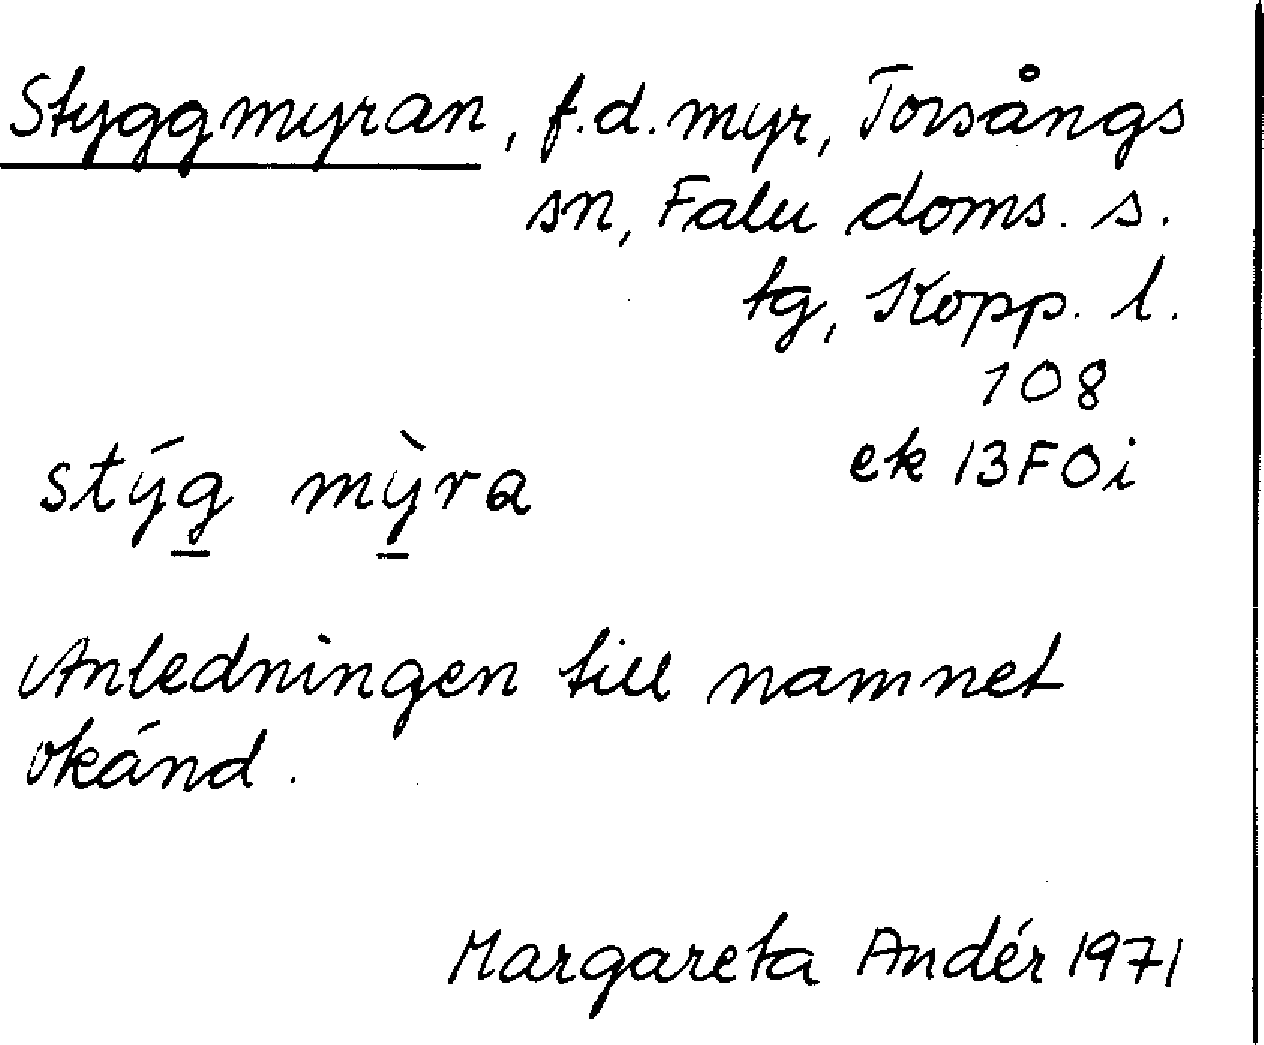 Styggmyran, f.d. myr, Torsångs
sn, Falu doms. s.
tg, Kopp. l.
108
ek 13F0i
stýg mỳra
Anledningen till namnet
okänd.
Margareta Andér 1971